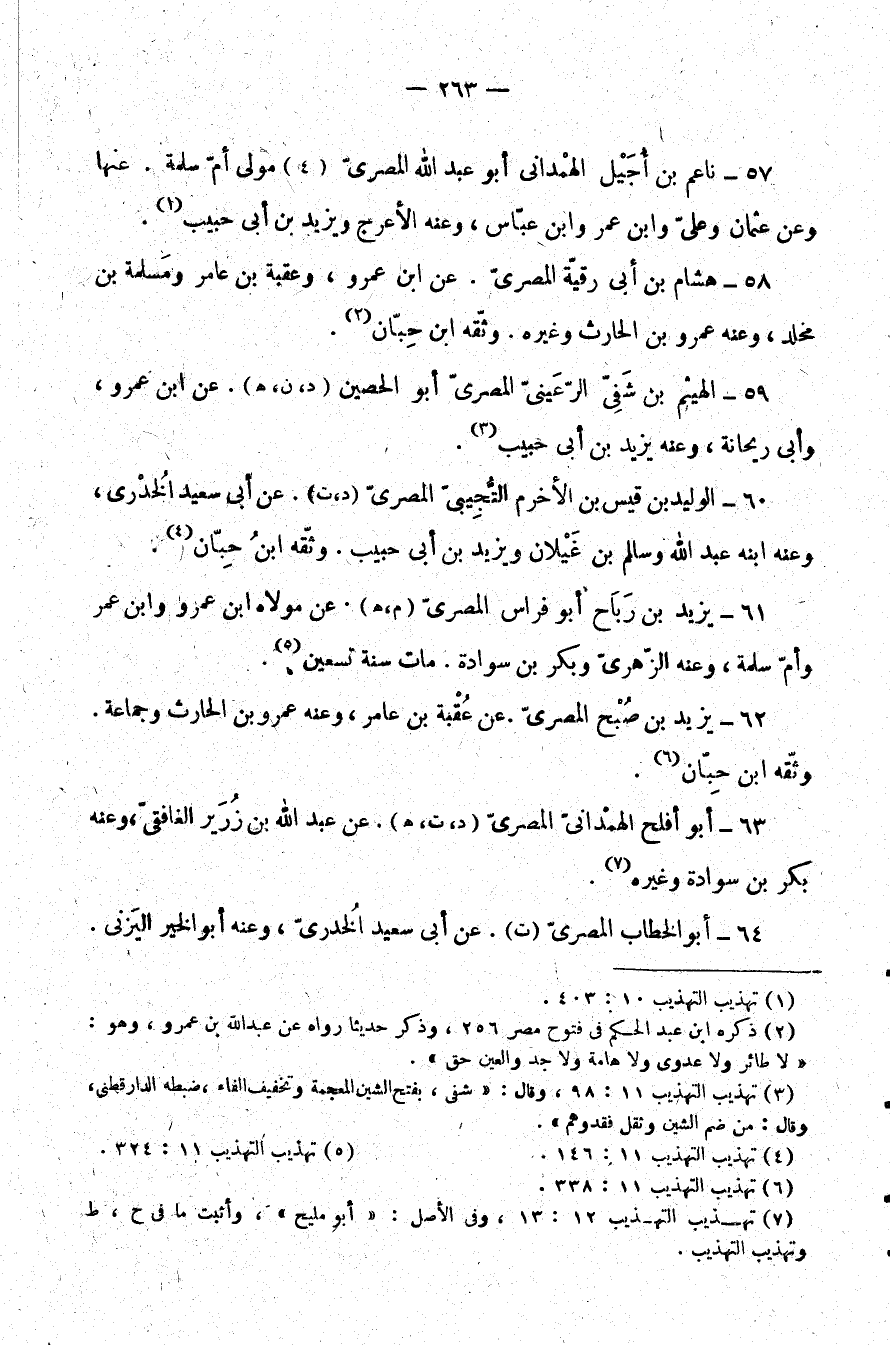 — ٢٦٣ —
٥٧ – ناعم بن أُجَيْل الهمْدانى أبو عبد الله المصرىّ ( ٤ ) مولى أمّ سلمة . عنها
وعن عثمان وعلىّ وابن عمر وابن عبّاس ، وعنه الأعرج ويزيد بن أبى حبيب(١) .
٥٨ – هشام بن أبى رقيّة المصرىّ . عن ابن عمرو ، وعقبة بن عامر ومَسلمة بن
مخلد ، وعنه عمرو بن الحارث وغيره . وثّقه ابن حِبّان(٢) .
٥٩ – الهيثم بن شَفِىّ الرّعَينىّ المصرىّ أبو الحصين ( د، ن، ه ) . عن ابن عمرو ،
وأبى ريحانة ، وعنه يزيد بن أبى حبيب(٣) .
٦٠ – الوليد بن قيس بن الأخرم التُّجِيبىّ المصرىّ (د،ت) . عن أبى سعيد الُخدْرى ،
وعنه ابنه عبد الله وسالم بن غَيْلان ويزيد بن أبى حبيب . وثّقه ابنُ حِبّان(٤) .
٦١ – يزيد بن رَبَاح أبو فراس المصرىّ (م،ه) . عن مولاه ابن عمرو وابن عمر
وأمّ سلمة ، وعنه الزّهرىّ وبكر بن سوادة . مات سنة تسعين(٥) .
٦٢ – يزيد بن صُبْح المصرىّ . عن عُقْبة بن عامر ، وعنه عمرو بن الحارث وجماعة .
وثّقه ابن حِبّان(٦) .
٦٣ – أبو أفلح الهمْدانىّ المصرىّ ( د، ت، ه ) . عن عبد الله بن زُرَير الغافقىّ ، وعنه
بكر بن سوادة وغيره(٧) .
٦٤ – أبو الخطاب المصرىّ (ت) . عن أبى سعيد الُخدرىّ ، وعنه أبو الخير اليَزنى .
(١) تهذيب التهذيب ١٠ : ٤٠٣ .
(٢) ذكره ابن عبد الحكم فى فتوح مصر ٢٥٦ ، وذكر حديثا رواه عن عبدالله بن عمرو ، وهو :
« لا طائر ولا عدوى ولا هامة ولا جد والعين حق » .
(٣) تهذيب التهذيب ١١ : ٩٨ ، وقال : « شفى ، بفتح الشين المعجمة وتخفيف الفاء ، ضبطه الدارقطنى ،
وقال : من ضم الشين وثقل فقدوهم » .
(٤) تهذيب التهذيب ١١ : ١٤٦ . (٥) تهذيب التهذيب ١١ : ٣٢٤ .
(٦) تهذيب التهذيب ١١ : ٣٣٨ .
(٧) تهـــذيب التهـذيب ١٢ : ١٣ ، وفى الأصل : « أبو مليح » ، وأثبت ما فى ح ، ط
وتهذيب التهذيب .